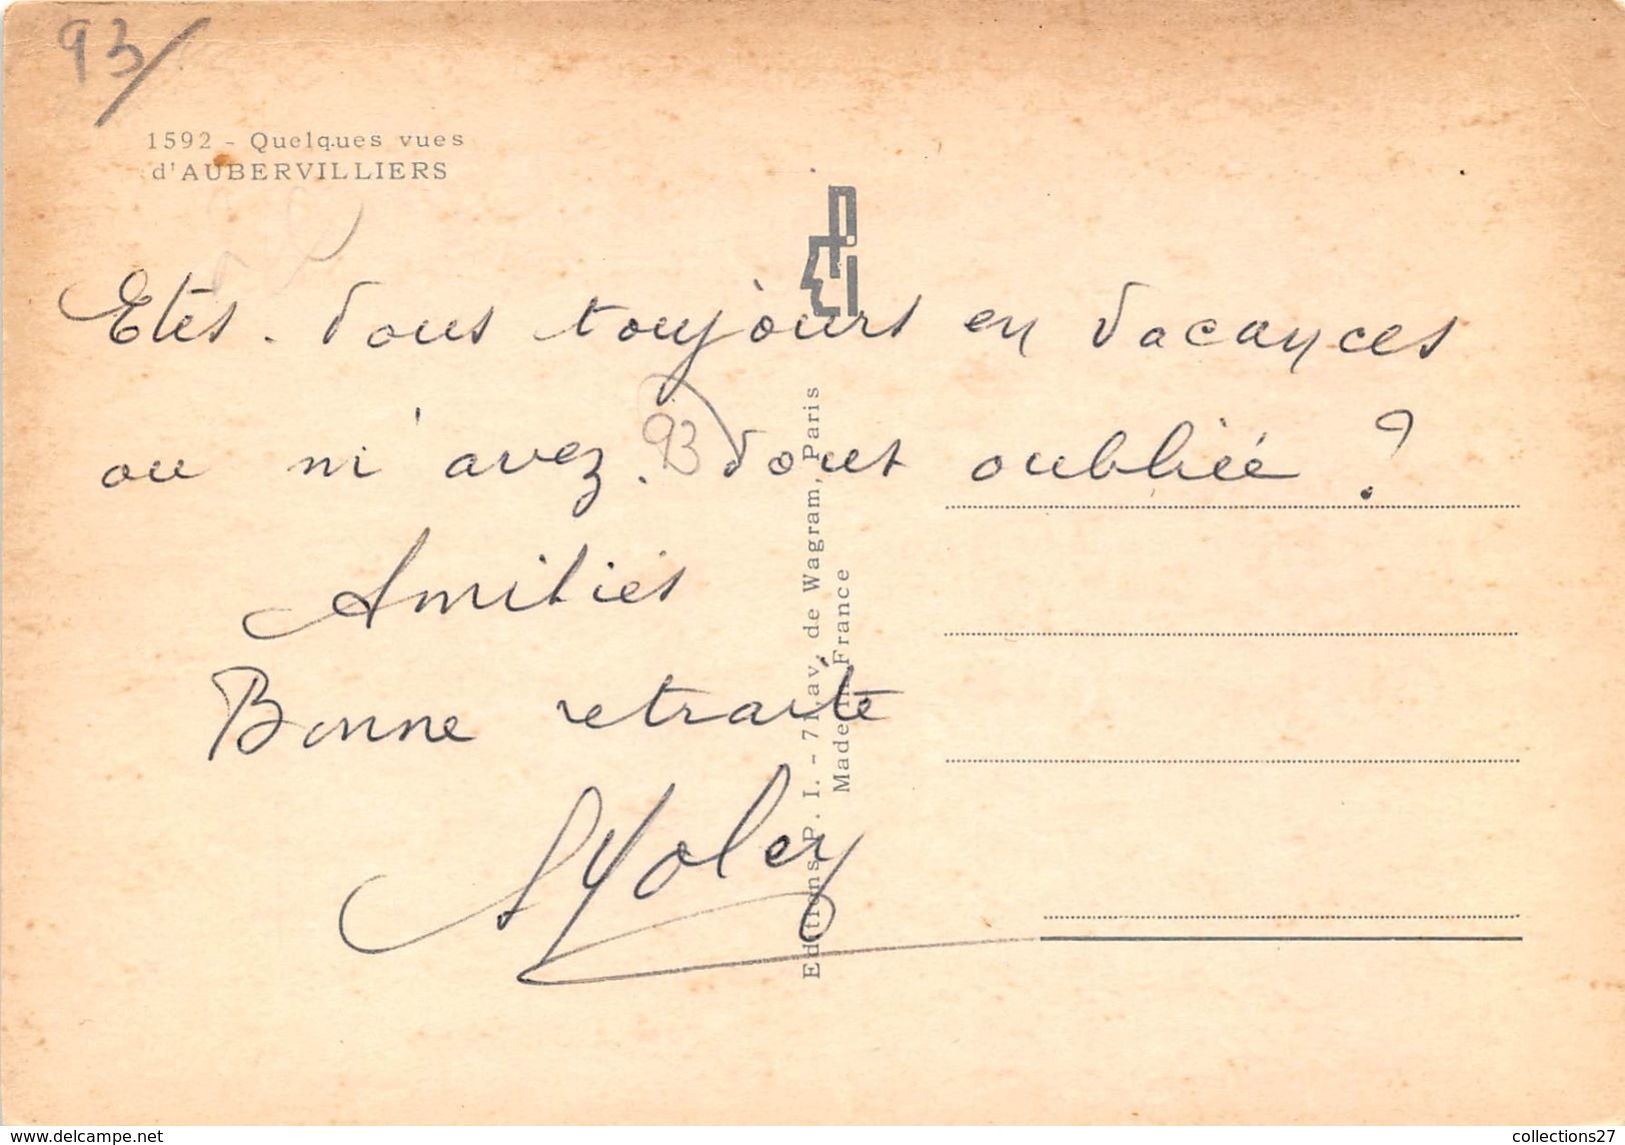 93/
1592 - Quelques vues
d'AUBERVILLIERS
Etes. vous toujours en vacances
ou m'avez. vous oubliée ?
93
Amitiés
Bonne retraite
Editions P. I. - 71 av. de Wagram, Paris
Made in France
delcampe.net
collections27